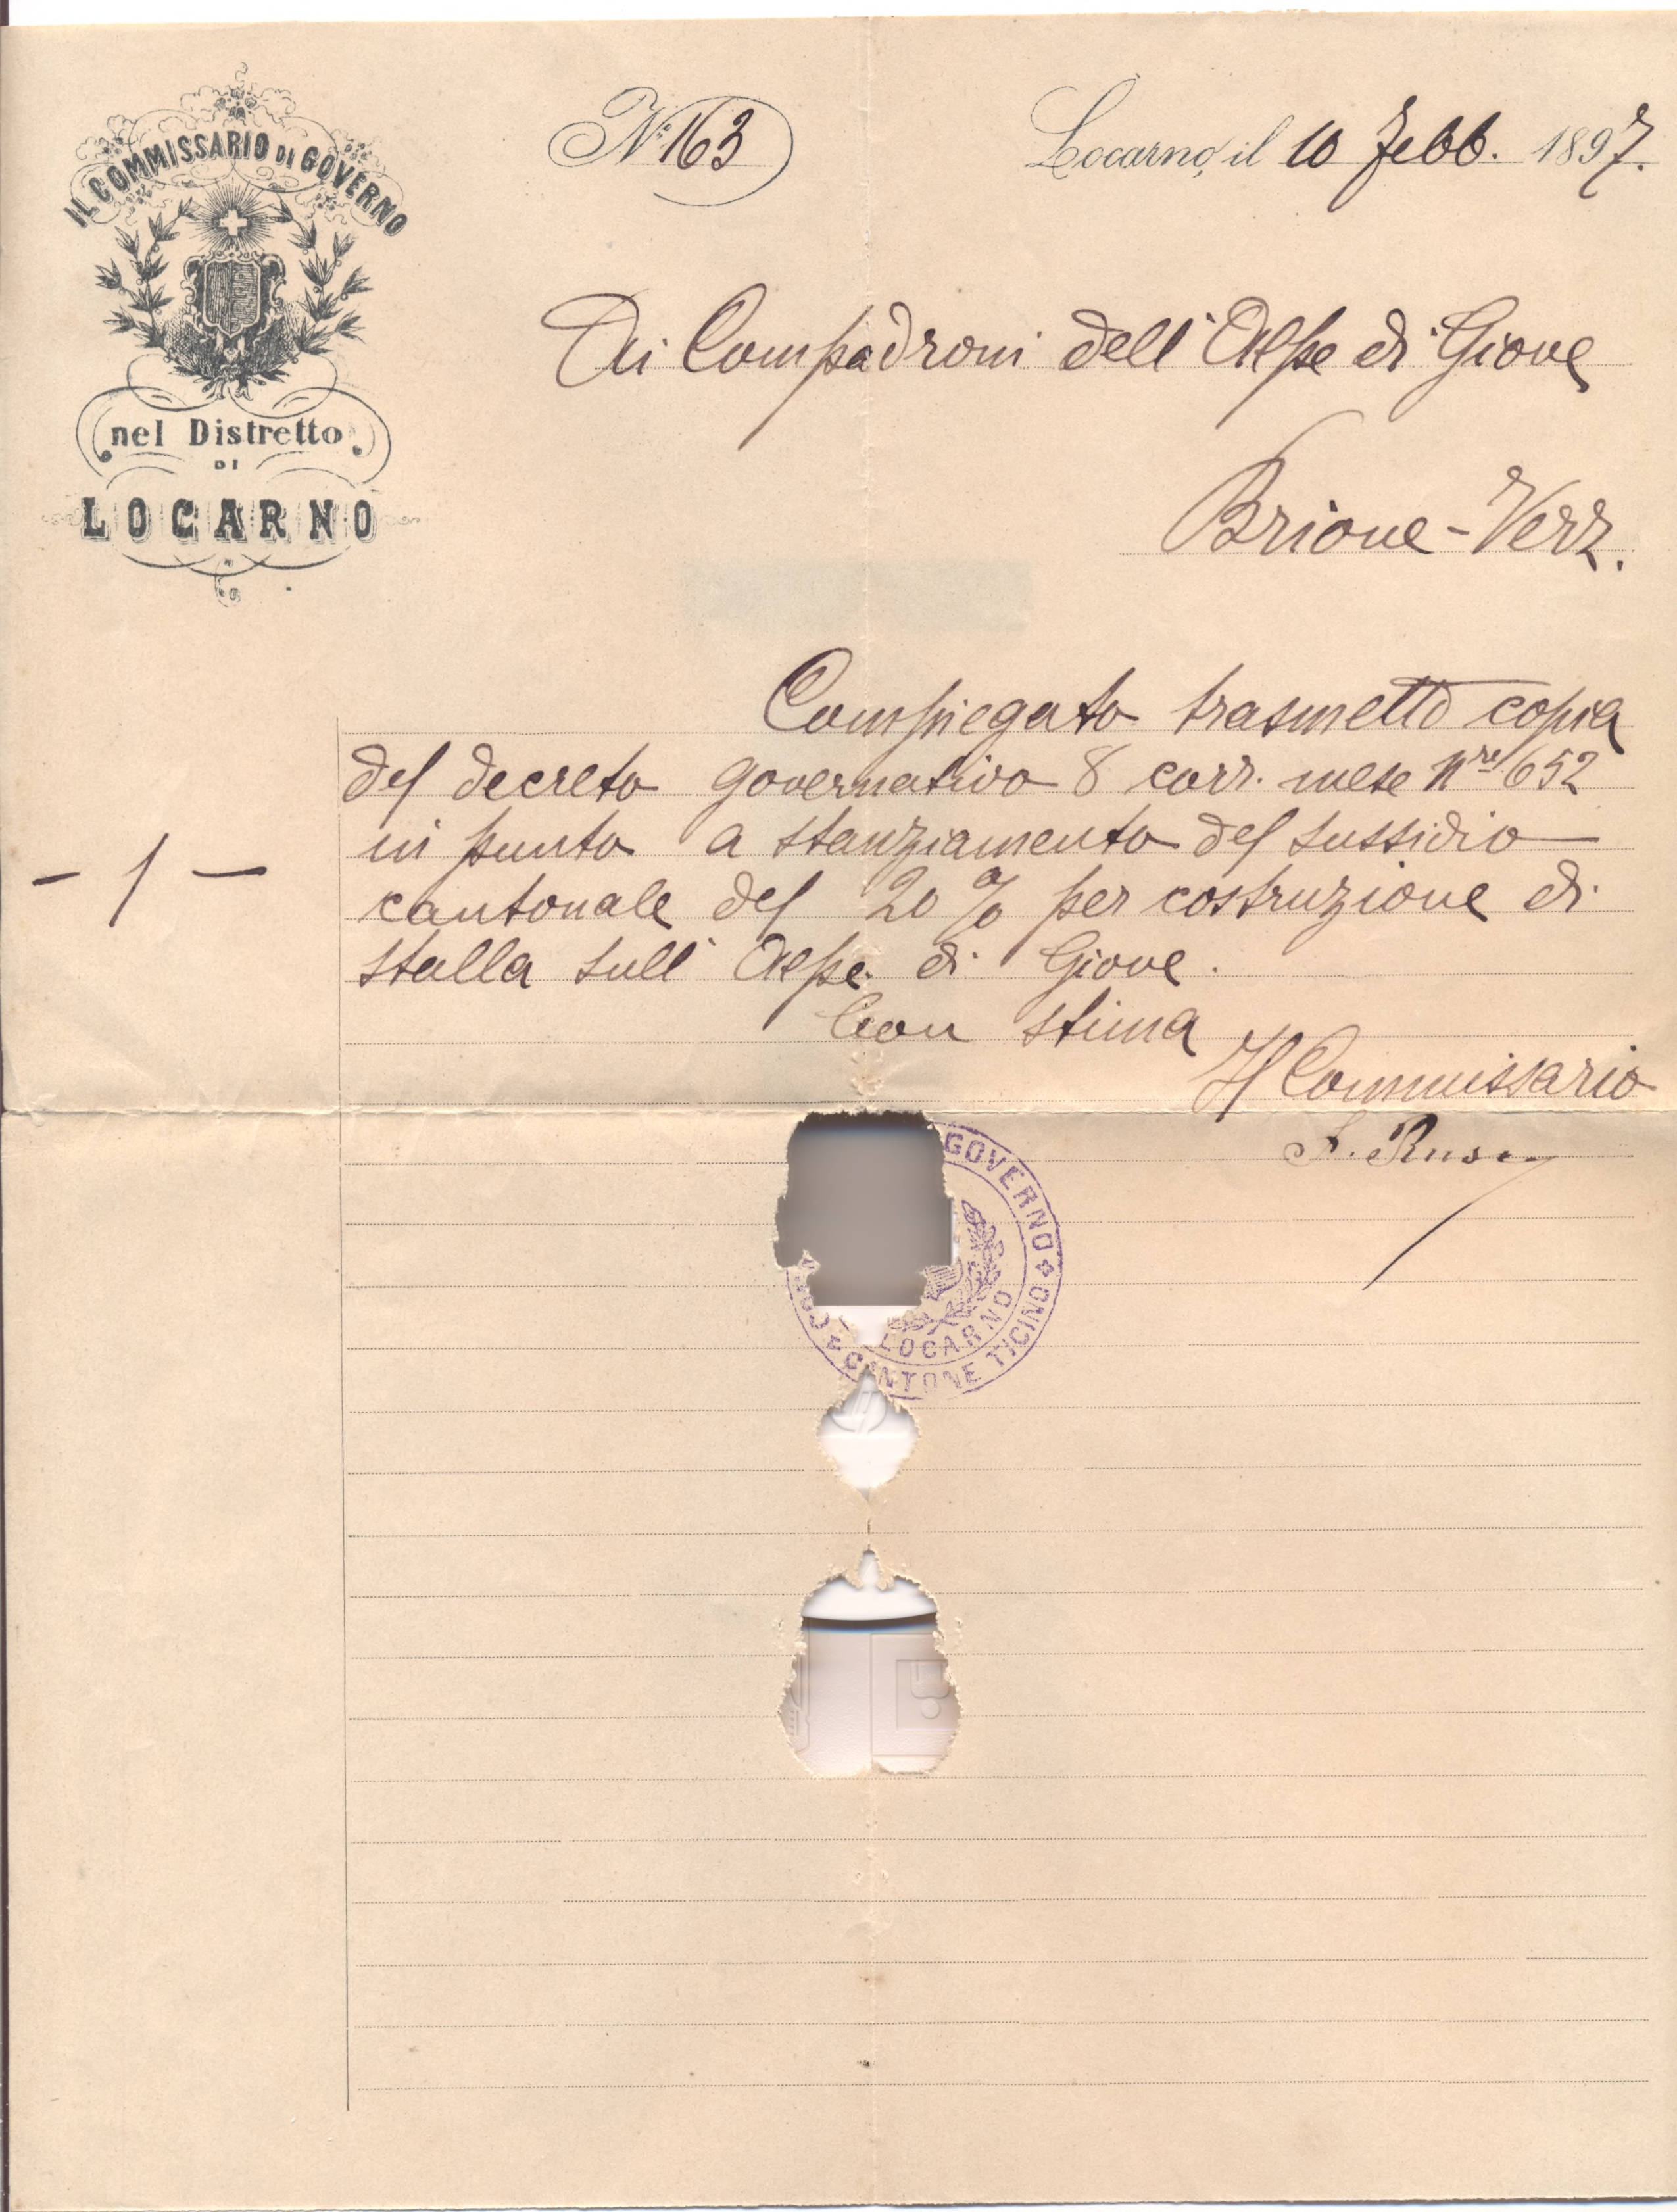 IL COMMISSARIO DI GOVERNO
nel Distretto
DI
LOCARNO
Nº 163
Locarno, il 10 Febb. 1897.
Ai Compadroni dell'Alpe di Giove
Brione-Verz.
Compiegato trasmetto copia
del decreto governativo 8 corr. mese Nre 652
in punto a stanziamento del sussidio
- 1 -
cantonale del 20 % per costruzione di
stalla sull'Alpe di Giove.
Con stima
Il Commissario
GOVERNO
LOCARNO
CANTONE TICINO